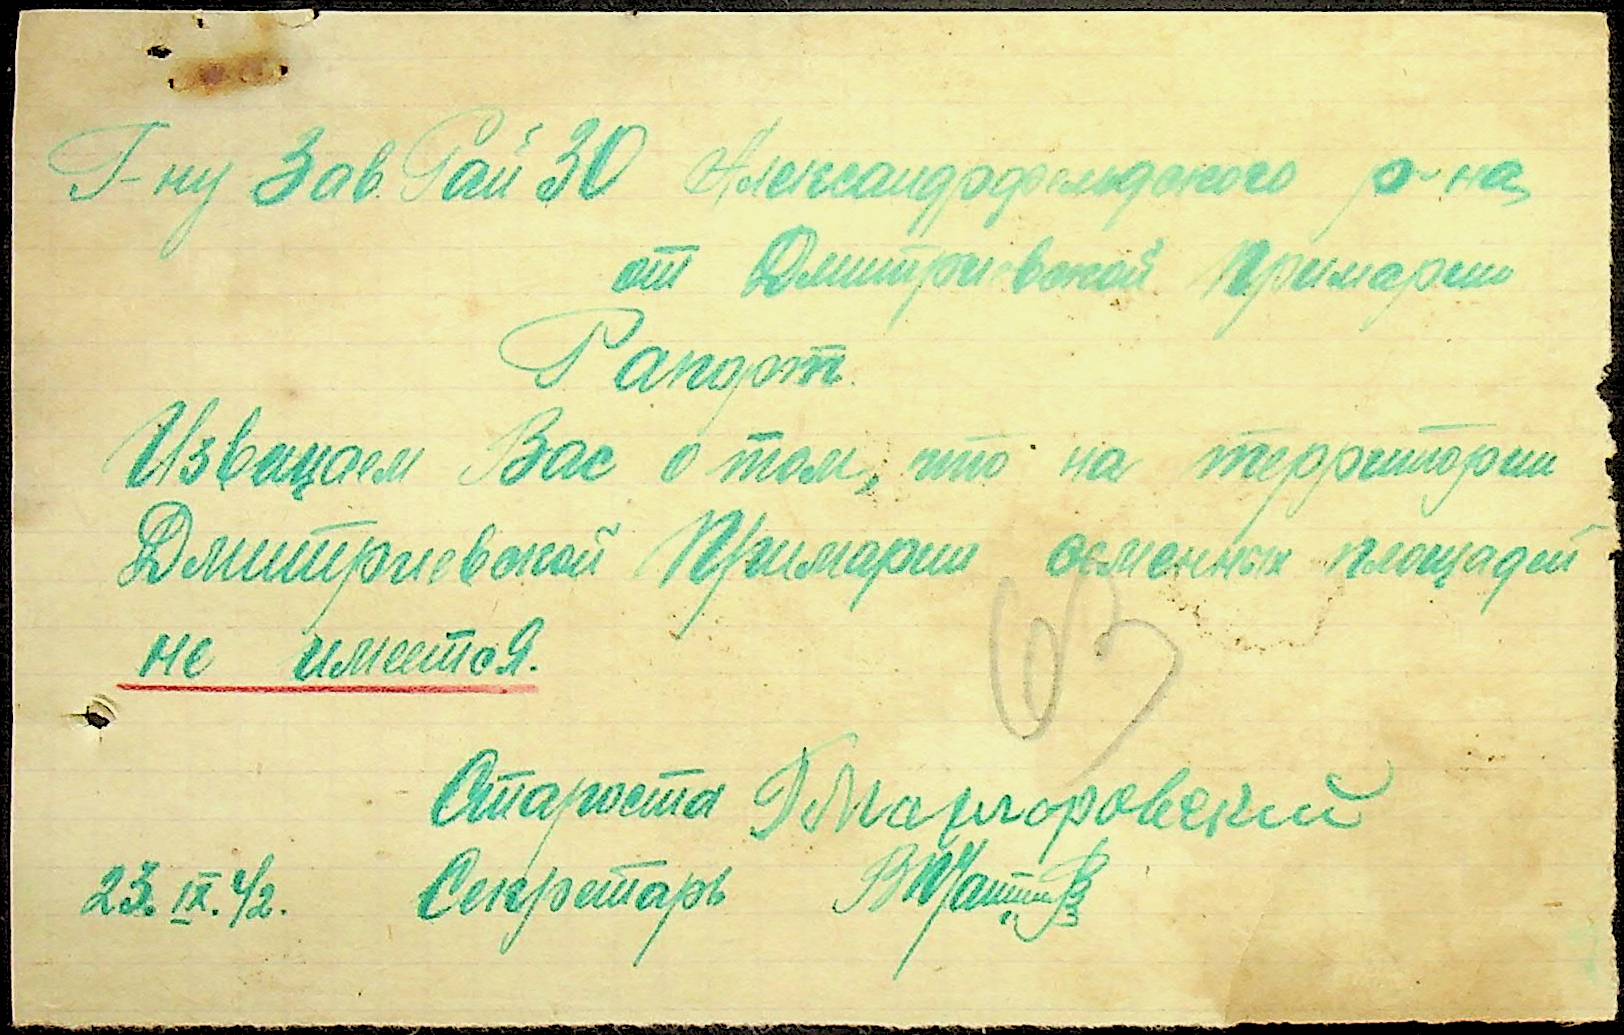 Г-ну Зав. РайЗО Александрфельдского р-на
от Дмитриевской Примарии
Рапорт.
Извещаем Вас о том, что на территории
Дмитриевской Примарии семенных площадей
не имеется.
63
Староста
23.IX.42. Секретарь